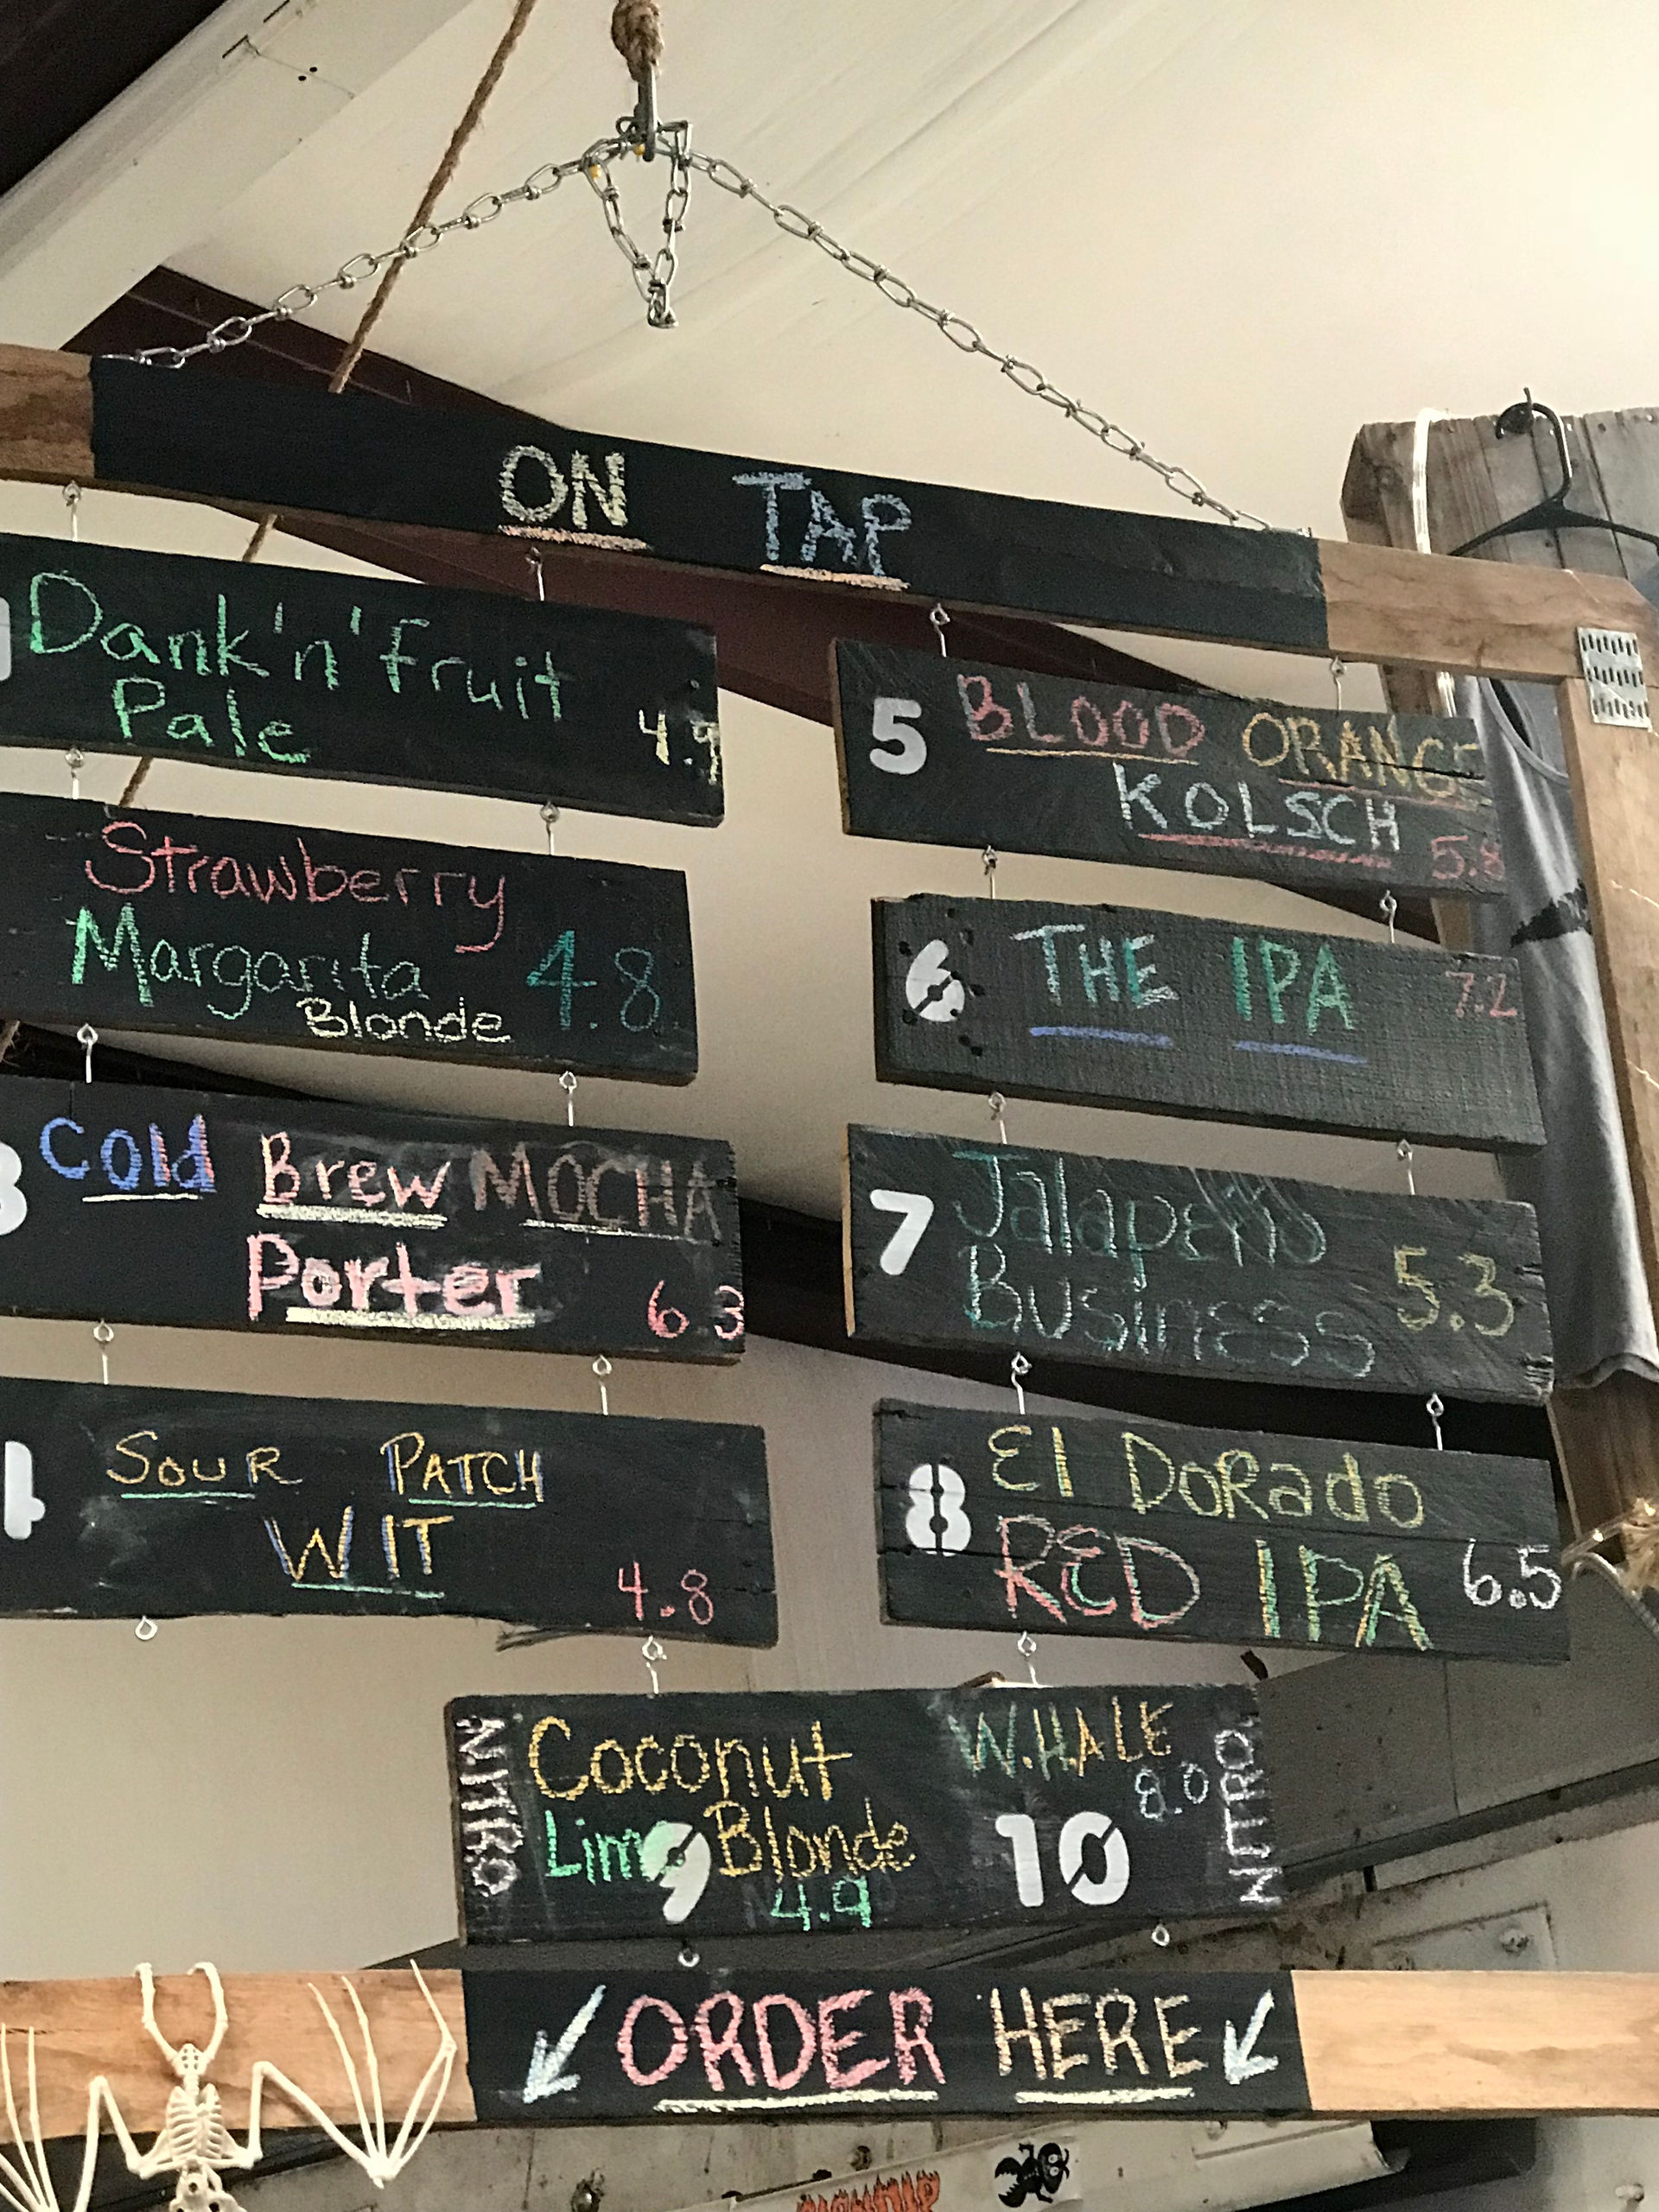 ON TAP
Dank'n'fruit
Pale 4.9
Strawberry
Margarita 4.8
Blonde
3 Cold Brew MOCHA
Porter 6.3
4 SOUR PATCH
WIT
4.8
5 BLOOD ORANGE
KOLSCH 5.8
6 THE IPA 7.2
7 Jalapeño
Business 5.3
8 El DoRado
RED IPA 6.5
NITRO
Coconut
Lime Blonde
9 4.9
W.H.ALE
8.0
10
NITRO
ORDER HERE